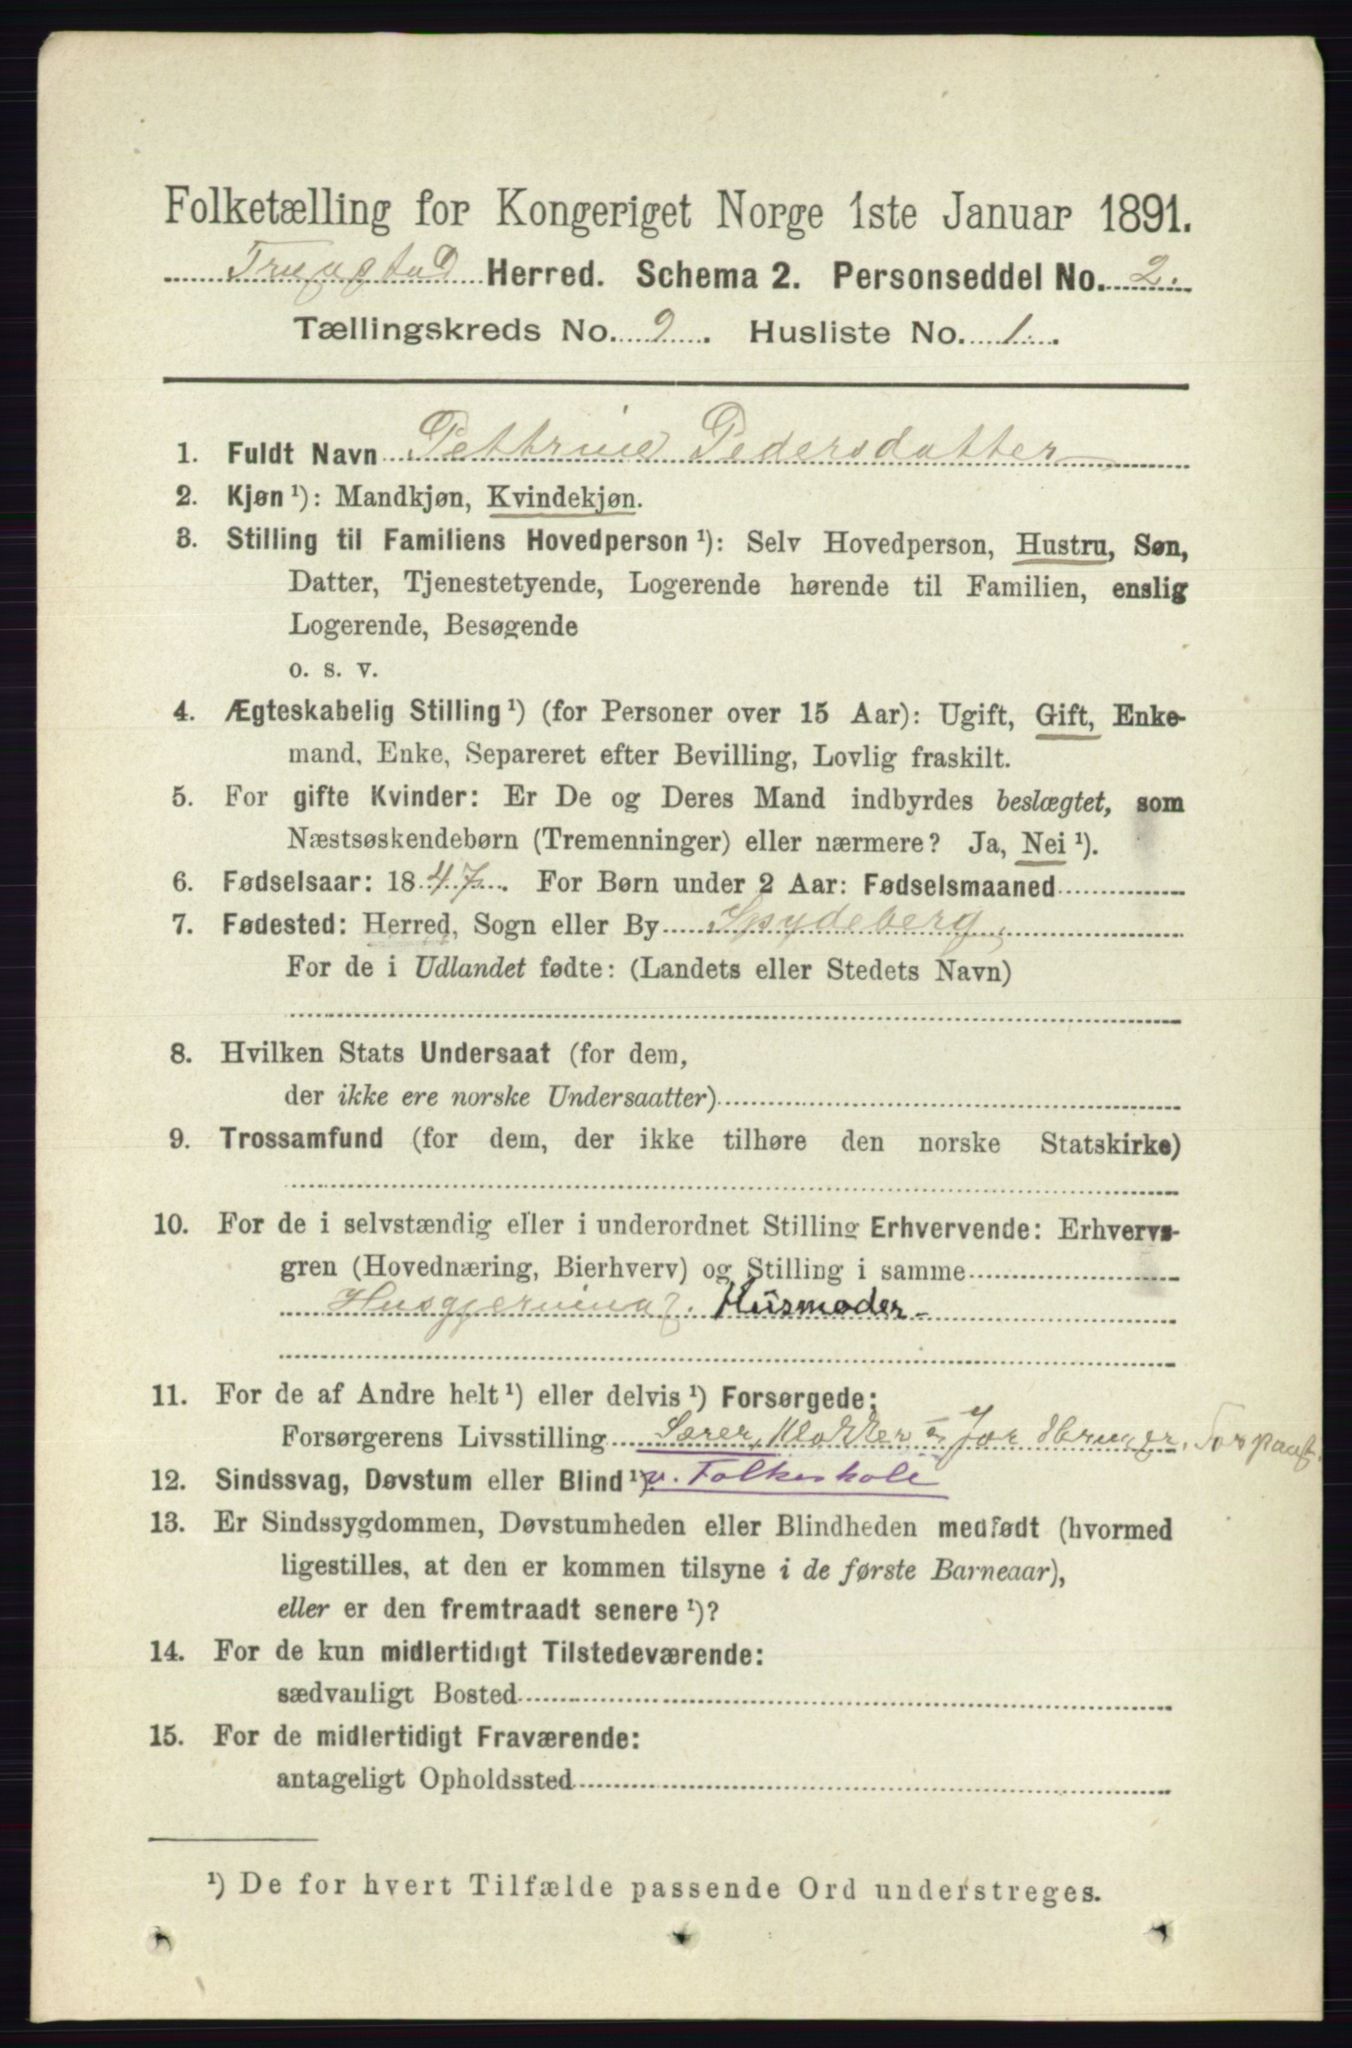 Folketælling for Kongeriget Norge 1ste Januar 1891.
Trygstad Herred. Schema 2. Personseddel No. 2.
Tællingskreds No. 2. Husliste No. 1.
1. Fuldt Navn Pettrine Pedersdatter
2. Kjøn ¹): Mandkjøn, Kvindekjøn.
3. Stilling til Familiens Hovedperson ¹): Selv Hovedperson, Hustru, Søn,
Datter, Tjenestetyende, Logerende hørende til Familien, enslig
Logerende, Besøgende
o. s. v.
4. Ægteskabelig Stilling ¹) (for Personer over 15 Aar): Ugift, Gift, Enke-
mand, Enke, Separeret efter Bevilling, Lovlig fraskilt.
5. For gifte Kvinder: Er De og Deres Mand indbyrdes beslægtet, som
Næstsøskendebørn (Tremenninger) eller nærmere? Ja, Nei ¹).
6. Fødselsaar: 1847. For Børn under 2 Aar: Fødselsmaaned
7. Fødested: Herred, Sogn eller By Spydeberg,
For de i Udlandet fødte: (Landets eller Stedets Navn)
8. Hvilken Stats Undersaat (for dem,
der ikke ere norske Undersaatter)
9. Trossamfund (for dem, der ikke tilhøre den norske Statskirke)
10. For de i selvstændig eller i underordnet Stilling Erhvervende: Erhvervs-
gren (Hovednæring, Bierhverv) og Stilling i samme
Husgjerning. Husmoder-
11. For de af Andre helt ¹) eller delvis ¹) Forsørgede;
Forsørgerens Livsstilling Lærer, Klokker &
12. Sindssvag, Døvstum eller Blind ¹). v. Folkeskole
13. Er Sindssygdommen, Døvstumheden eller Blindheden medfødt (hvormed
ligestilles, at den er kommen tilsyne i de første Barneaar),
eller er den fremtraadt senere ¹)?
14. For de kun midlertidigt Tilstedeværende:
sædvanligt Bosted
15. For de midlertidigt Fraværende:
antageligt Opholdssted
¹) De for hvert Tilfælde passende Ord understreges.